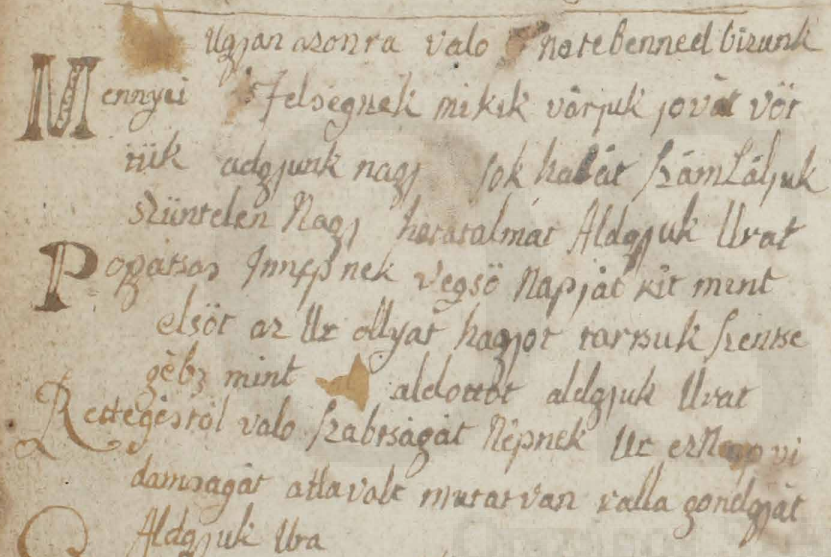 Ugjan azonra valo Note Benned bizunk
Mennyei Felségnek mikik várjuk jovát vöt
tük adgjunk nagj sok halát Számláljuk
szüntelen Nagj hatatalmát Áldgjuk Urat
Popátsas Innepnek végsö Napját kit mint
elsöt az Ur ollyat hagjot tartsuk Szentse
gébz mint aldottot aldgjuk Urat
Rettegéstöl valo Szabtságát Népnek Ur ez Nap vi
damsagát atta volt mutatvan valla gondgját
Aldgjuk Ura